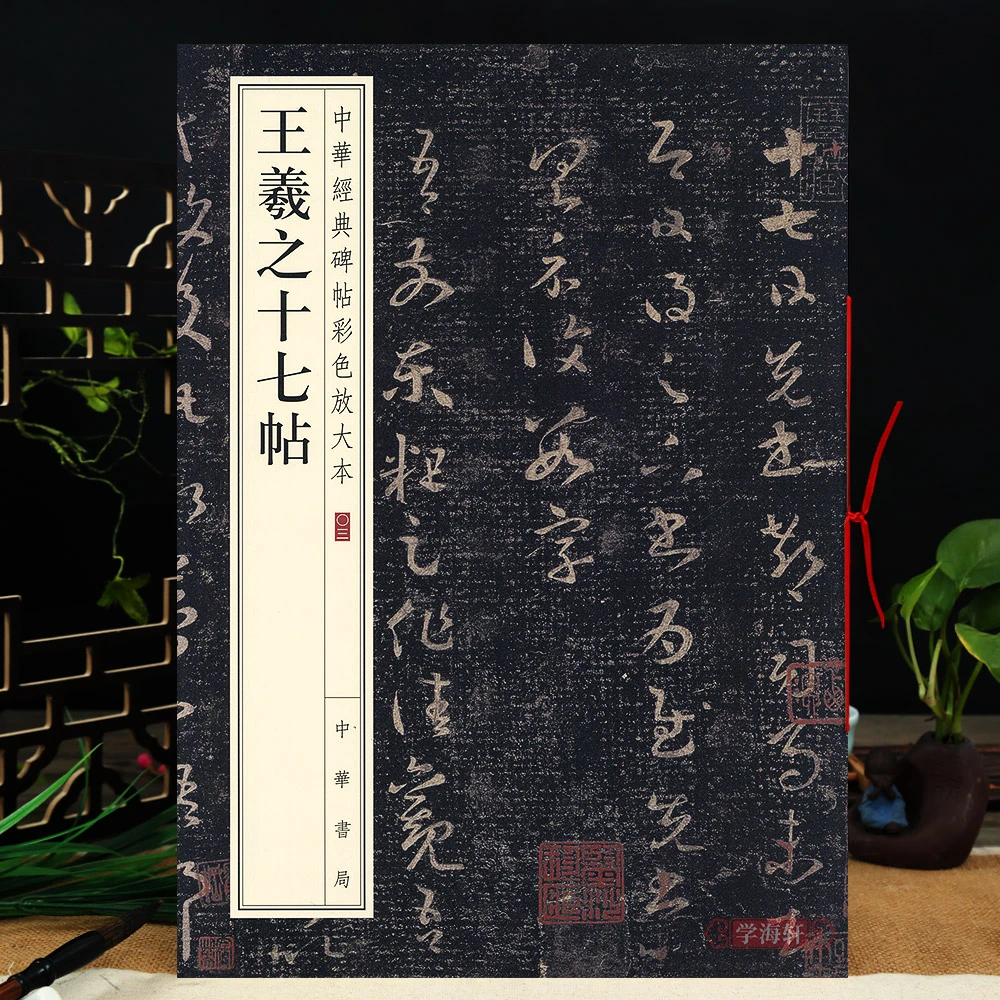 十七日先書郗司馬未去
即日得足下書為慰先書以
具示復數字
吾前東粗足作佳觀吾
中華經典碑帖彩色放大本
〇三
中華書局
王羲之十七帖
学海轩